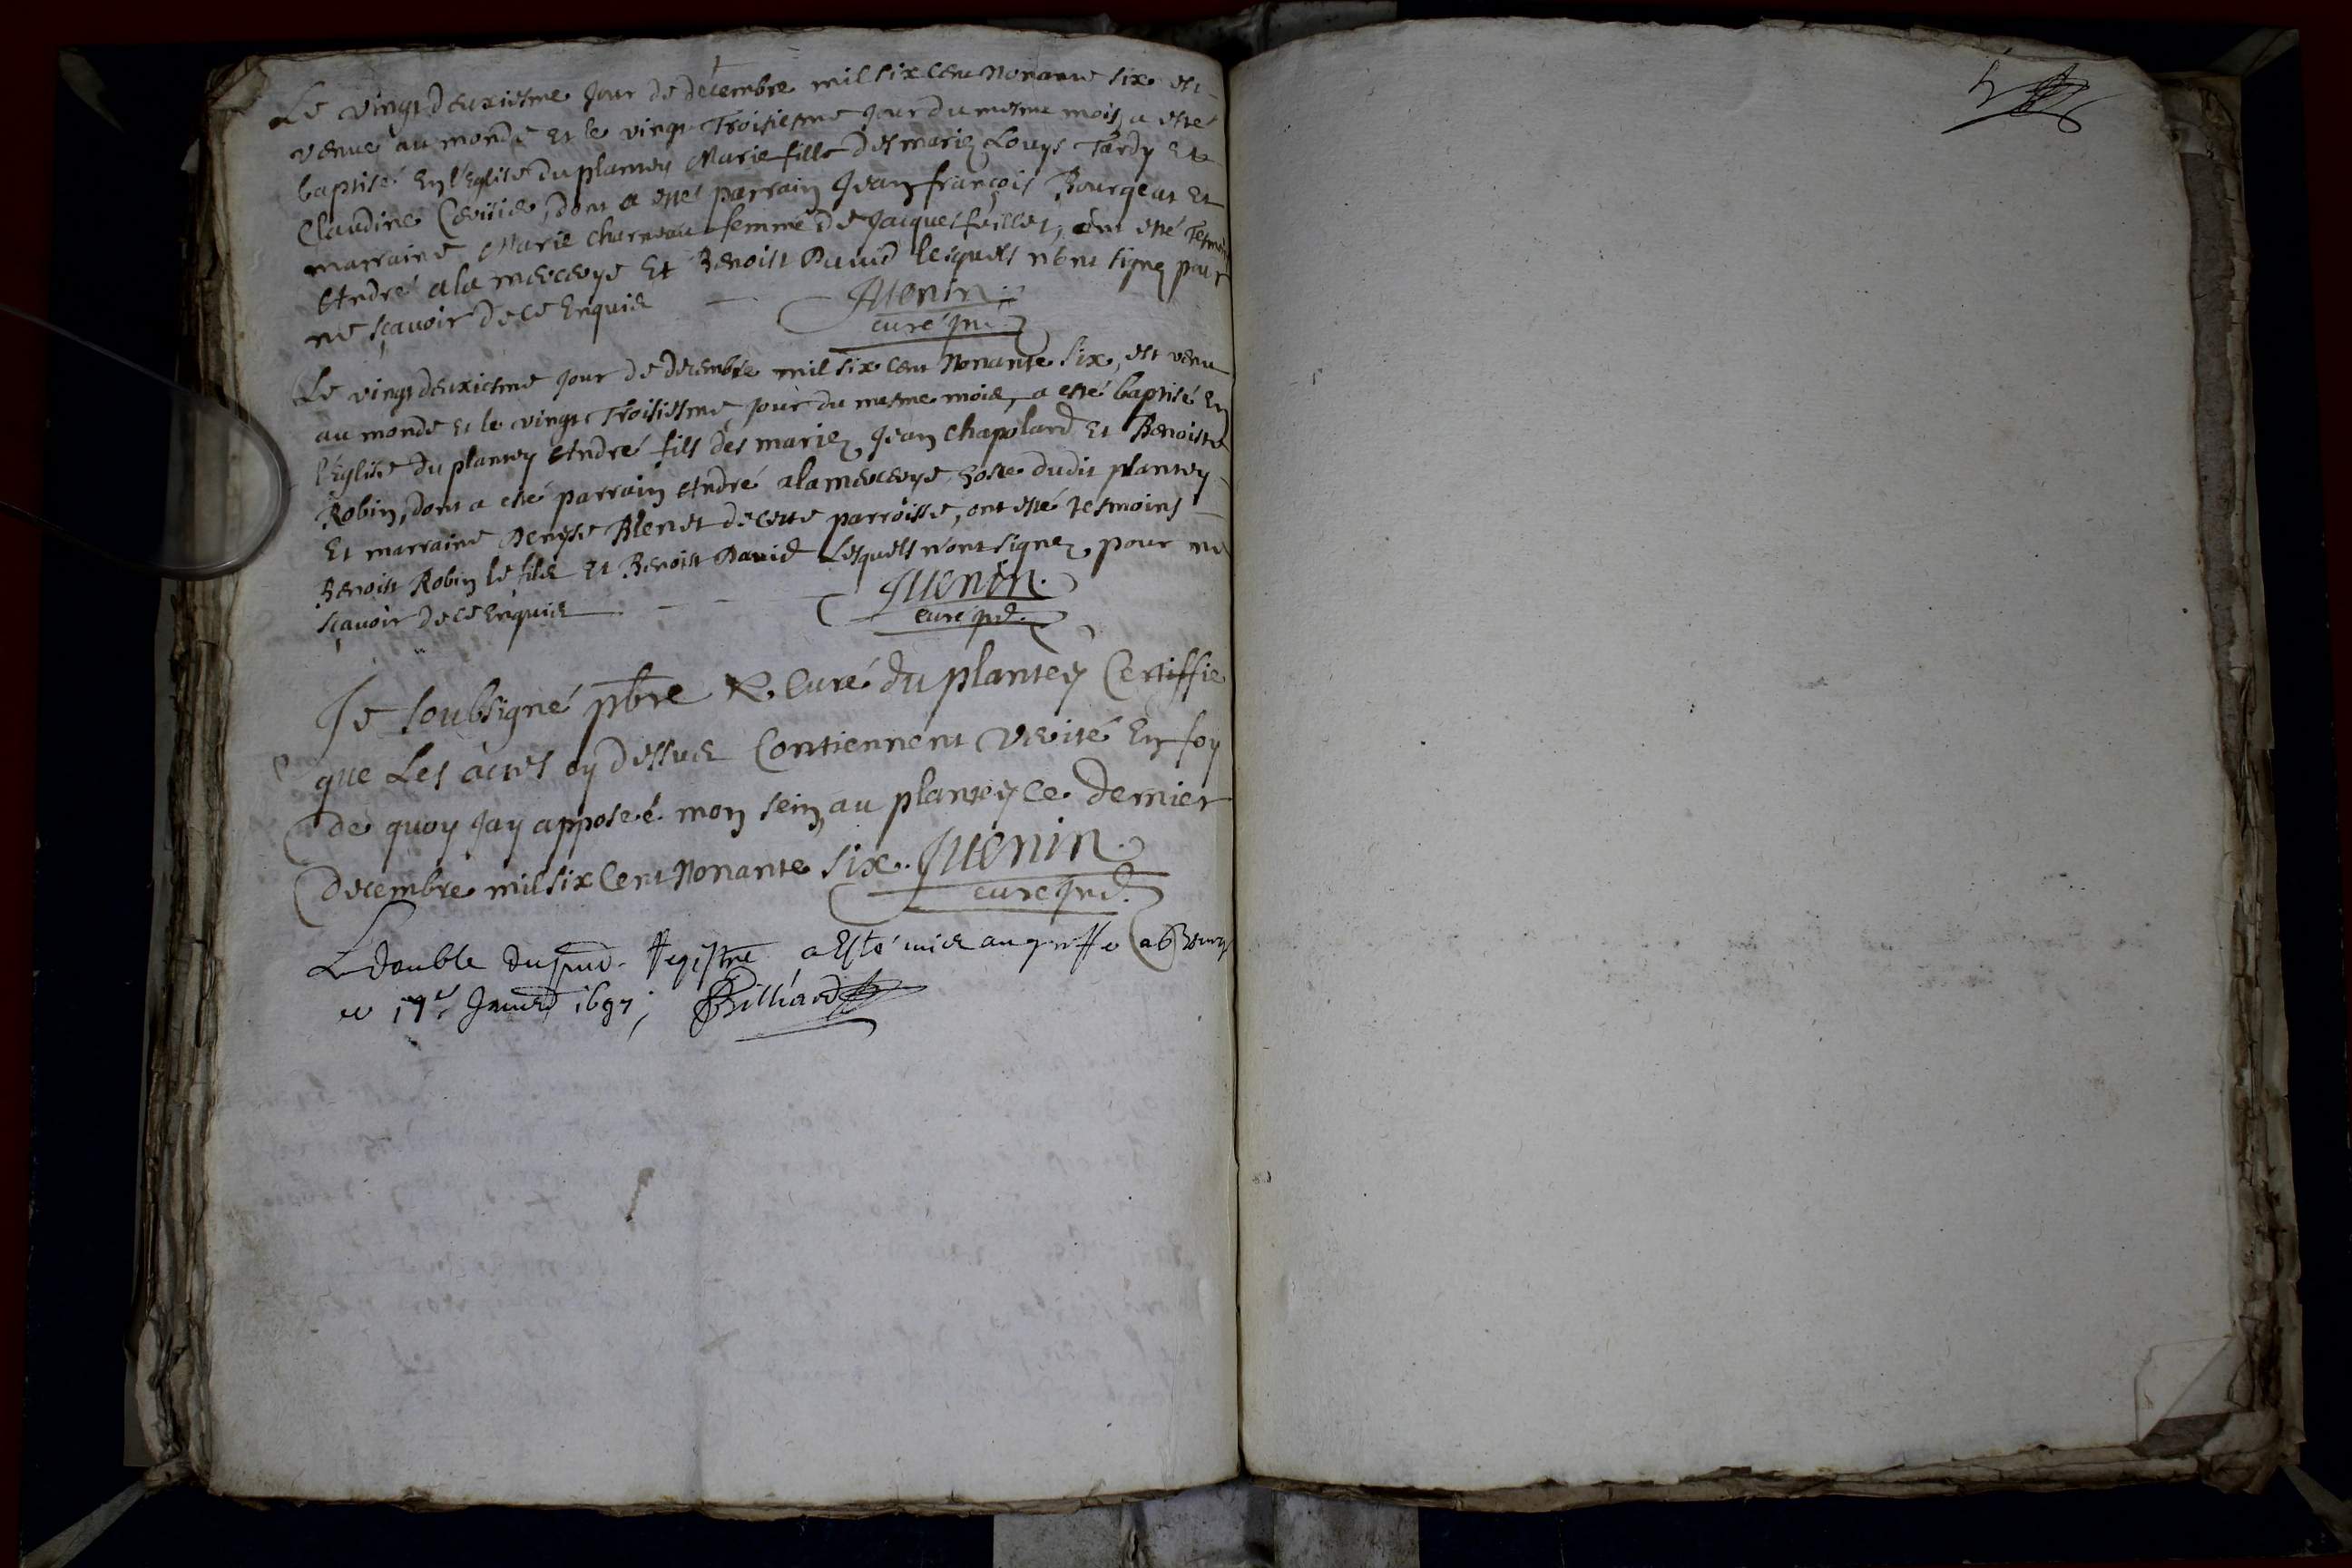 Le vingt deuxiesme Jour de décembre mil six cent nonante six est
venue au monde et le vingt Troisiesme Jour du mesme mois a esté
baptisé En l'Eglise du plantey Marie fille des mariez Louys Tardy Et
Claudine dont a esté parrain Jean françois Bourgeat Et
marraine Marie charneau femme de Jacques feillet, ont esté Tesmoins
André alamercerye Et Benoist David lesquels n'ont signez pour
ne sçavoir de ce Enquis
Juenin
curé
Le vingt deuxiesme Jour de decembre mil six cent Nonante six, est venu
au monde et le vingt Troisiesme Jour du mesme mois, a esté baptisé En
l'Eglise du plantey André fils des mariez Jean chapolard Et Benoiste
Robin, dont a esté parrain André alamercerye hoste dudit plantey
Et marraine Denyse Blenet de cette parroisse, ont esté tesmoins
Benoist Robin le fils Et Benoist David Lesquels n'ont signez, pour ne
sçavoir de ce Enquis
Juenin.
curé
Je soubsigné pbre & Curé du plantey Certiffie
que Les actes cy dessus Contiennent verité En foy
de quoy Jay apposeé mon sein, au plantey ce dernier
decembre mil six Cent Nonante six. Juenin
curé
Le double du pnt. Registre a Esté mis au greffe a Bourg
ce Janvier 1697; Billiard